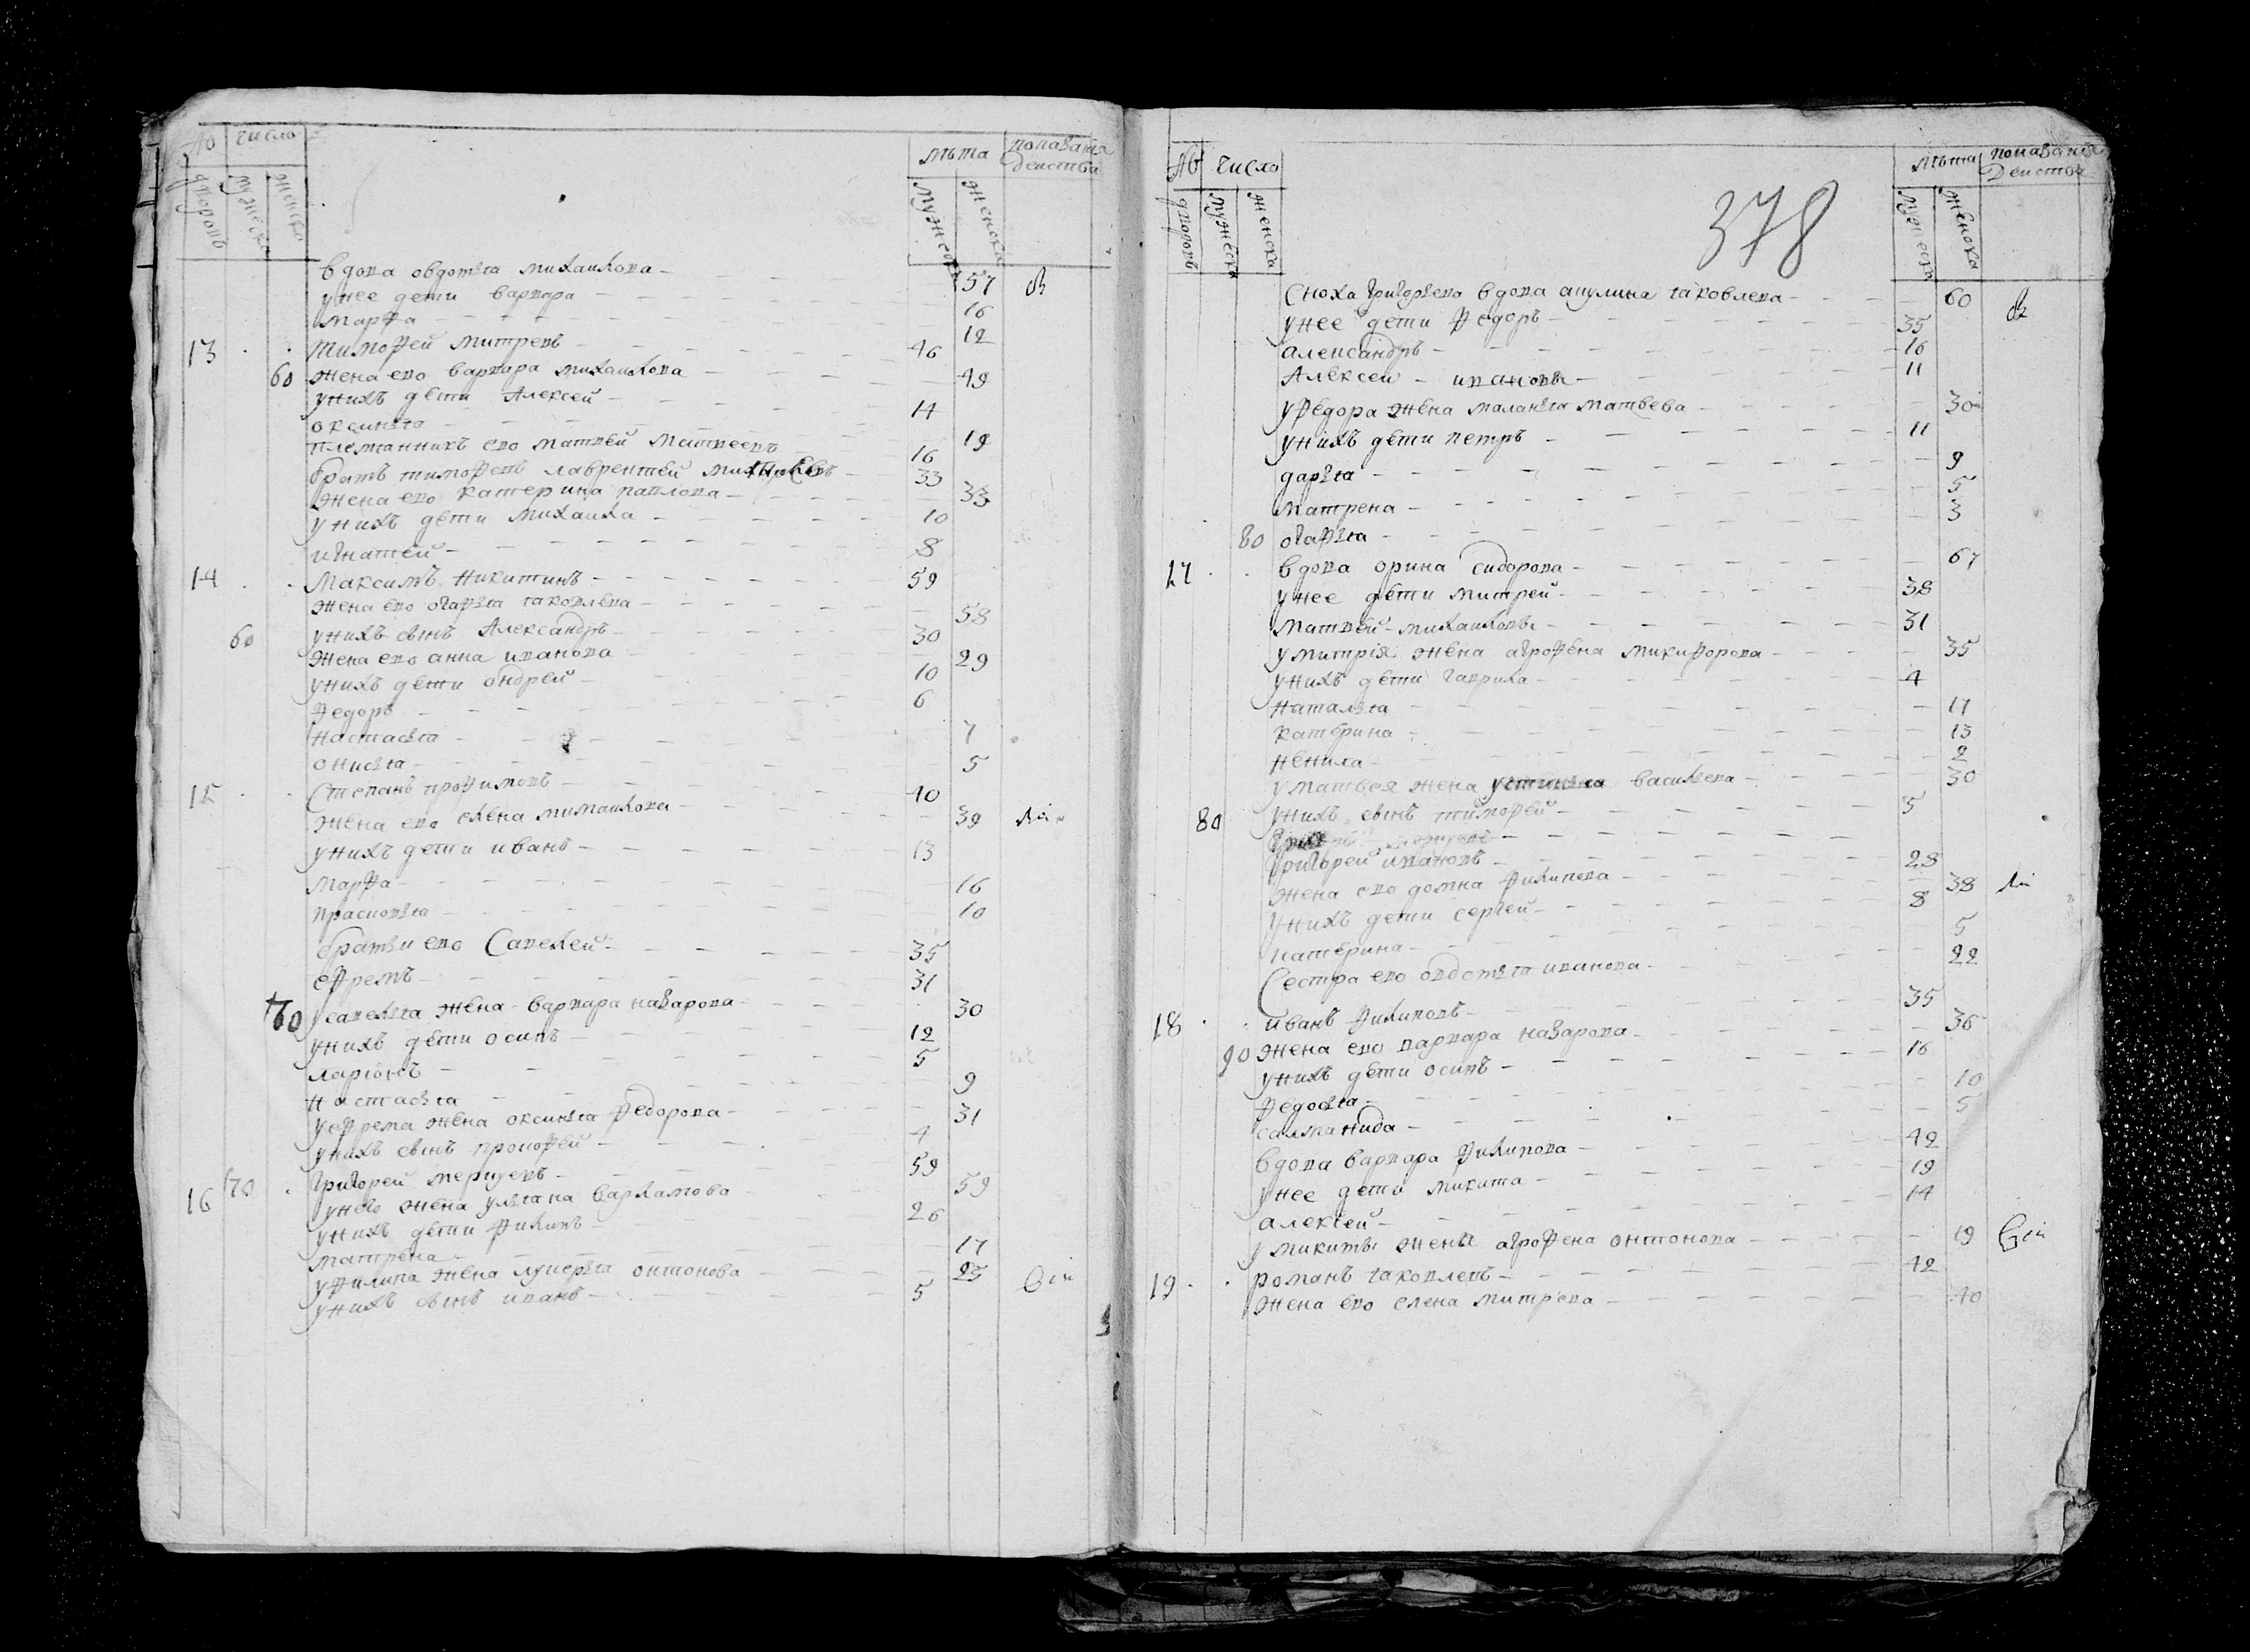 № число лѣта показания
действа
дворовъ мужеска женска мужеска женска
вдова овдотья михаилова 57
унее дети варвара 16
марфа 12
13 тимофей митревъ 46
60 жена ево варвара михаилова 49
унихъ дети Алексей 14
оксинья 19
племянникъ ево матвей матвеевъ 16
братъ тимофеевъ лаврентей 33
жена ево катерина павлова 33
унихъ дети михаила 10
игнатей 8
14 Максимъ никитинъ 59
жена ево огафья яковлева 58
60 унихъ сынъ Александръ 30
жена ево анна иванова 29
унихъ дети ондрей 10
федоръ 6
настасья 7
онисья 5
15 Степанъ трофимовъ 40
жена ево елена михаилова 39
унихъ дети иванъ 13
марфа 16
прасковья 10
братьи ево Савелей 35
ефремъ 31
70 усавелья жена варвара назарова 30
унихъ дети осипъ 12
ларионъ 5
настасья 9
уефрема жена оксинья федорова 31
унихъ сынъ прокофей 4
16 70 григорей меркуевъ 59
унего жена ульяна варламова 59
унихъ дети филипъ 26
матрена 17
уфилипа жена лукерья онтонова 25
унихъ сынъ иванъ 5
№ число лѣта показания
действа
дворовъ мужеска женска мужеска женска
378
сноха григорьева вдова акулина яковлева 60
унее дети федоръ 35
александръ 16
Алексеи ивановы 11
уфедора жена маланья матвеева 30
унихъ дети петръ 11
дарья 9
матрена 5
80 огафья 3
17 вдова орина сидорова 67
унее дети митрей 38
матвей михаиловы 31
умитрия жена агрофена микифорова 35
унихъ дети гаврила 4
наталья 17
катерина 13
ненила 2
уматвея жена устинья василева 30
80 унихъ сынъ тимофей 5
григорей ивановъ 28
жена ево домна филипова 38
унихъ дети сергей 8
катерина 5
Сестра ево овдотья иванова 22
18 иванъ филиповъ 35
90 жена ево варвара назарова 36
унихъ дети осипъ 16
федосья 10
саламанида 5
вдова варвара филипова 42
унее дети микита 19
алексей 14
умикиты жена агрофена онтонова 19
19 романъ яковлевъ 42
жена ево елена митрева 40